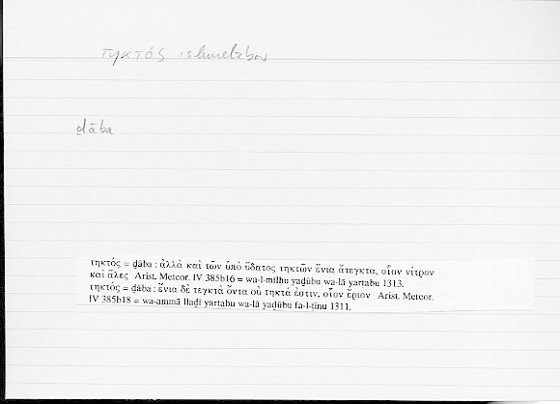 τηκτός schmelzbar
ḏāba
τηκτός = ḏāba : ἀλλὰ καὶ τῶν ὑπὸ ὕδατος τηκτῶν ἔνια ἄτεγκτα, οἷον νίτρον
καὶ ἅλες Arist. Meteor. IV 385b16 = wa-l-milḥu yaḏūbu wa-lā yartabu 1313.
τηκτός = ḏāba : ἔνια δὲ τεγκτὰ ὄντα οὐ τηκτά ἐστιν, οἷον ἔριον Arist. Meteor.
IV 385b18 = wa-ammā llaḏī yartabu wa-lā yaḏūbu fa-l-ṭīnu 1311.